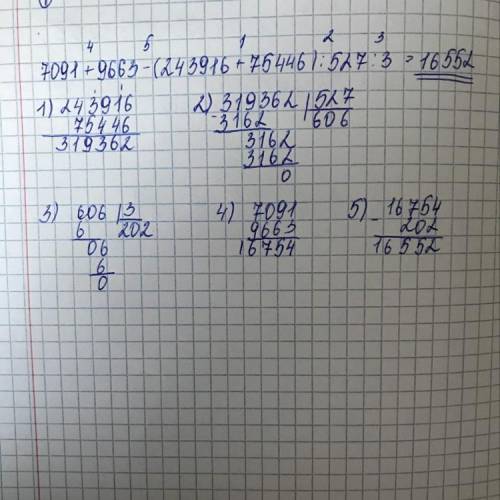 4 5 1 2 3
7091 + 9663 - (243916 + 75446) : 527 : 3 = 16552
1) 243916
75446
319362
2) 319362 | 527
- 3162 606
3162
3162
0
3) 606 | 3
6 202
06
6
0
4) 7091
9663
16754
5) - 16754
202
16552